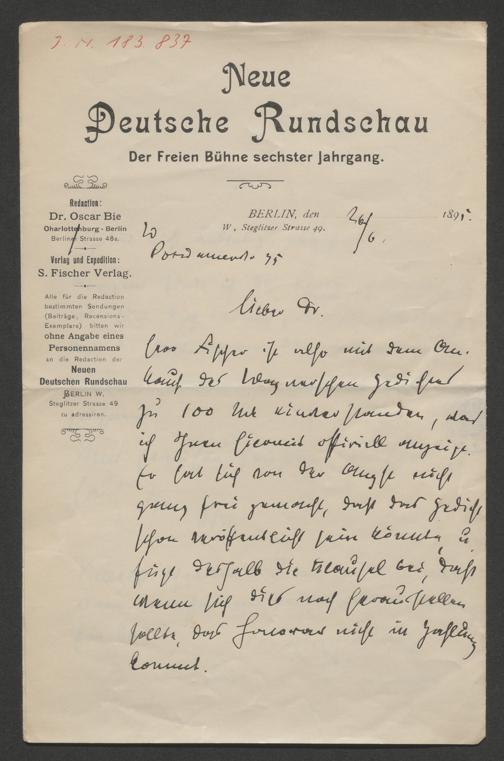 J. N. 183.837
Neue
Deutsche Rundschau
Der Freien Bühne sechster Jahrgang.
Redaction:
Dr. Oscar Bie
Charlottenburg - Berlin
Berliner Strasse 48a.
Verlag und Expedition:
S. Fischer Verlag.
Alle für die Redaction
bestimmten Sendungen
(Beiträge, Recensions-
Exemplare) bitten wir
ohne Angabe eines
Personennamens
an die Redaction der
Neuen
Deutschen Rundschau
BERLIN W.
Steglitzer Strasse 49
zu adressiren.
BERLIN, den 26/6. 1895.
W, Steglitzer Strasse 49.
Lieber Dr.
Herr Fischer ist also mit dem An-
kauf des Wagnerschen Gedichtes
zu 100 Mk einverstanden, was
ich Ihnen hiermit officiell anzeige.
Er hat sich von der Angst nicht
ganz frei gemacht, daß das Gedicht
schon veröffentlicht sein könnte, u.
fügt deshalb die Klausel bei, daß
wenn sich dies noch herausstellen
sollte, das Honorar nicht in Zahlung
kommt.